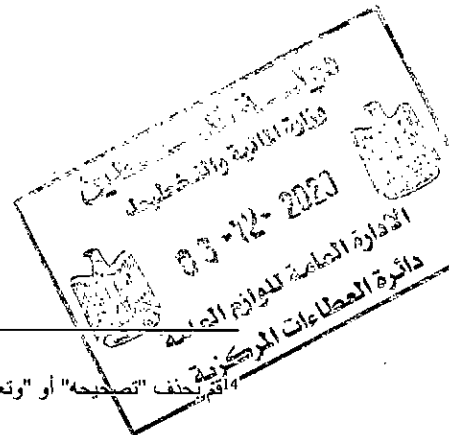 دولة فلسطين
وزارة المالية والتخطيط
03-12-2023
الادارة العامة للوازم العامة
دائرة العطاءات المركزية
14قم بحذف "تصحيحه" أو "وتع